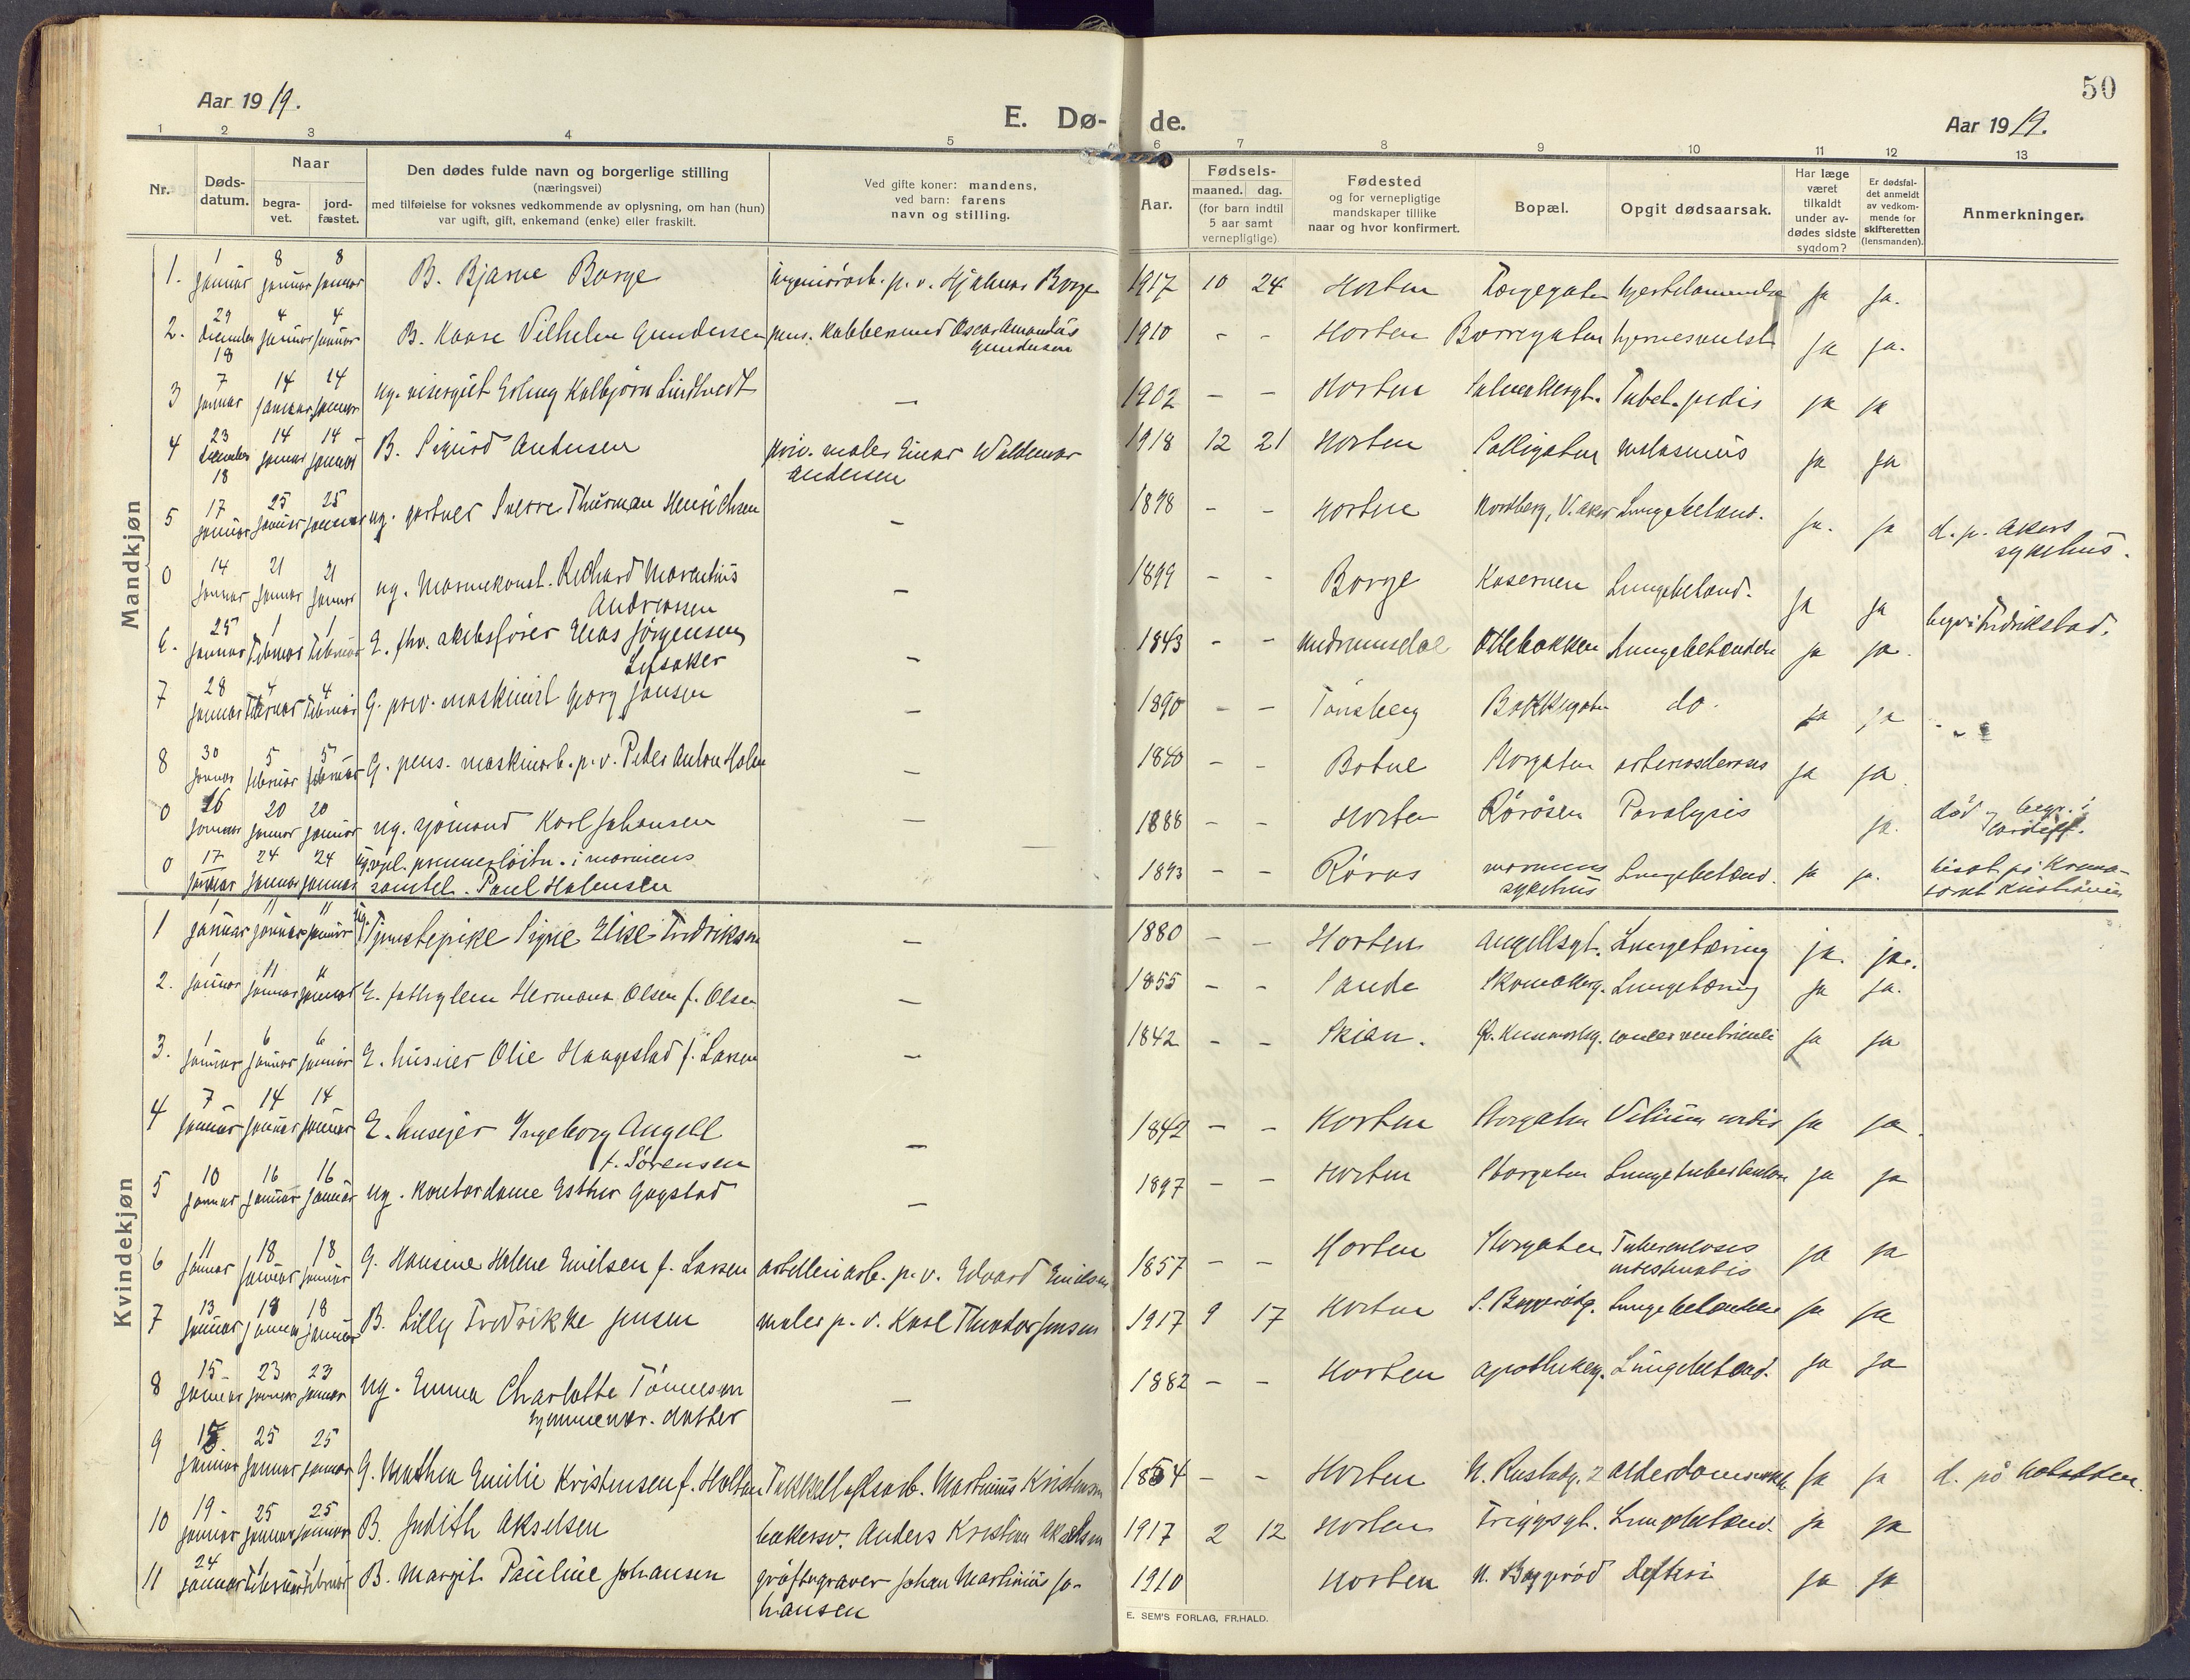 50
Aar 1919.
E. Dø-
de.
Aar 1919.
1 2 3 4 5 6 7 8 9 10 11 12 13
Nr.
Døds-
datum.
Naar
begra-
vet.
jord-
fæstet.
Den dødes fulde navn og borgerlige stilling
(næringsvei)
med tilføielse for voksnes vedkommende av oplysning, om han (hun)
var ugift, gift, enkemand (enke) eller fraskilt.
Ved gifte koner: mandens,
ved barn: farens
navn og stilling.
Aar.
Fødsels-
maaned. dag.
(for barn indtil
5 aar samt
vernepligtige)
Fødested
og for vernepligtige
mandskaper tillike
naar og hvor konfirmert.
Bopæl.
Opgit dødsaarsak.
Har læge
været
tilkaldt
under av-
dødes sidste
sygdom?
Er dødsfal-
det anmeldt
av vedkom-
mende for
skifteretten
(lensmanden).
Anmerkninger.
Mandkjøn
1. 1 januar 8 januar 8 januar B. Bjarne Borge p. v. Hjalmar Borge 1917 10 24 Horten Torgegaten ja ja.
2. 29 december 18 4 januar 4 januar B. Kaare Vilhelm Gundersen pens. kabbelmed Oscar Amandus
Gundersen 1910 - - Horten Borregaten hjernesvulst ja ja.
3 7 januar 14 januar 14 januar ug. visergut Erling Kolbjørn Lindtvedt — 1902 - - Horten Tubel. pedis ja ja
4 23 december 18 14 januar 14 januar B. Sigurd Andersen priv. maler Einar Waldemar
Andersen 1918 12 21 Horten ja ja
5 17 januar 25 januar 25 januar ug. gartner Sverre Thurman Henrichsen — 1898 - - Horten Nordberg, V. Aker Lungebetænd. ja. ja d. p. Akers
sykehus.
0 14 januar 21 januar 21 januar ug. Richard Marentius
Andreassen — 1899 - - Borge Kasernen Lungebetænd. ja ja begr. i Fredrikstad.
6. 25 januar 1 februar 1 februar E. fhv. Elias Jørgensen
Lefsaker — 1843 - - Ollebakken Lungebetændelse ja ja.
7 28 januar 4 februar 4 februar G. priv. maskinist Georg Jansen — 1890 - - Tønsberg Bakkegaten do. ja ja
8 30 januar 5 februar 5 februar G. pens. maskinarb. p. v. Peder Anton Holm — 1840 - - Botne Norgaten arteriosclerosis ja ja.
0 16 januar 20 januar 20 januar ug. sjømand Karl Johansen — 1888 - - Horten Rørøsen Paralysis ja. død og begr. i
Cardiff.
0 17 januar 24 januar 24 januar ug. vpl. premierløitn. i marinens
sanitet. Paul Holmsen 1893 - - Røros marinens
sykehus Lungebetænd. ja ja. bisat på Krema-
toriet Kristiania
Kvindekjøn
1 1 januar 11 januar 11 januar ug. Tjenestepike Signe Elise Fredriksen — 1880 - - Horten Angellsgt. Lungetæring ja. ja.
2. 1 januar 11 januar 11 januar E. fattiglem Hermana Olsen f. Olsen — 1855 - - Sande Skomakerg. Lungetæring ja ja.
3. 1 januar 6 januar 6 januar E. huseier Olie Haugestad f. Larsen — 1842 - - Skien. cancer ventriculi ja ja
4 7 januar 14 januar 14 januar E. huseier Ingeborg Angell
f. Sørensen — 1842 - - Horten Storgaten Vitium cordis ja ja.
5 10 januar 16 januar 16 januar ug. kontordame Esther Gogstad — 1897 - - Horten Storgaten Lungetuberkulose ja ja
6 11 januar 18 januar 18 januar G. Hansine Helene Emilsen f. Larsen artelleriarb. p. v. Edvard Emilsen 1857 - - Horten Storgaten Tuberculosis
intestinalis ja ja
7 13 januar 18 januar 18 januar B. Lilly Fredrikke Jensen maler p. v. Karl Theodor Jensen 1917 9 17 Horten S. Baggerødg. Lungebetændelse ja ja
8 15 januar 23 januar 23 januar ug. Emma Charlotte Tønnesen
tømmermr. datter — 1882 - - Horten Apothekerg. Lungebetænd. ja ja
9 15 januar 25 januar 25 januar G. Mathea Emilie Kristensen f. Holtan Takkelloftsarb. Martinius Kristensen 1854 - - Horten N. Rustadg. 2 ja ja d. på
10 19 januar 25 januar 25 januar B. Judith Akselsen bakersv. Anders Kristian Akselsen 1917 2 12 Horten Triggsgt. Lungebetænd. ja ja
11 24 januar 1 februar 1 februar B. Margit Pauline Johansen grøftegraver Johan Martinius Jo-
hansen 1910 Horten N. Baggerød Defteri ja ja
E. SEM'S FORLAG, FR.HALD.